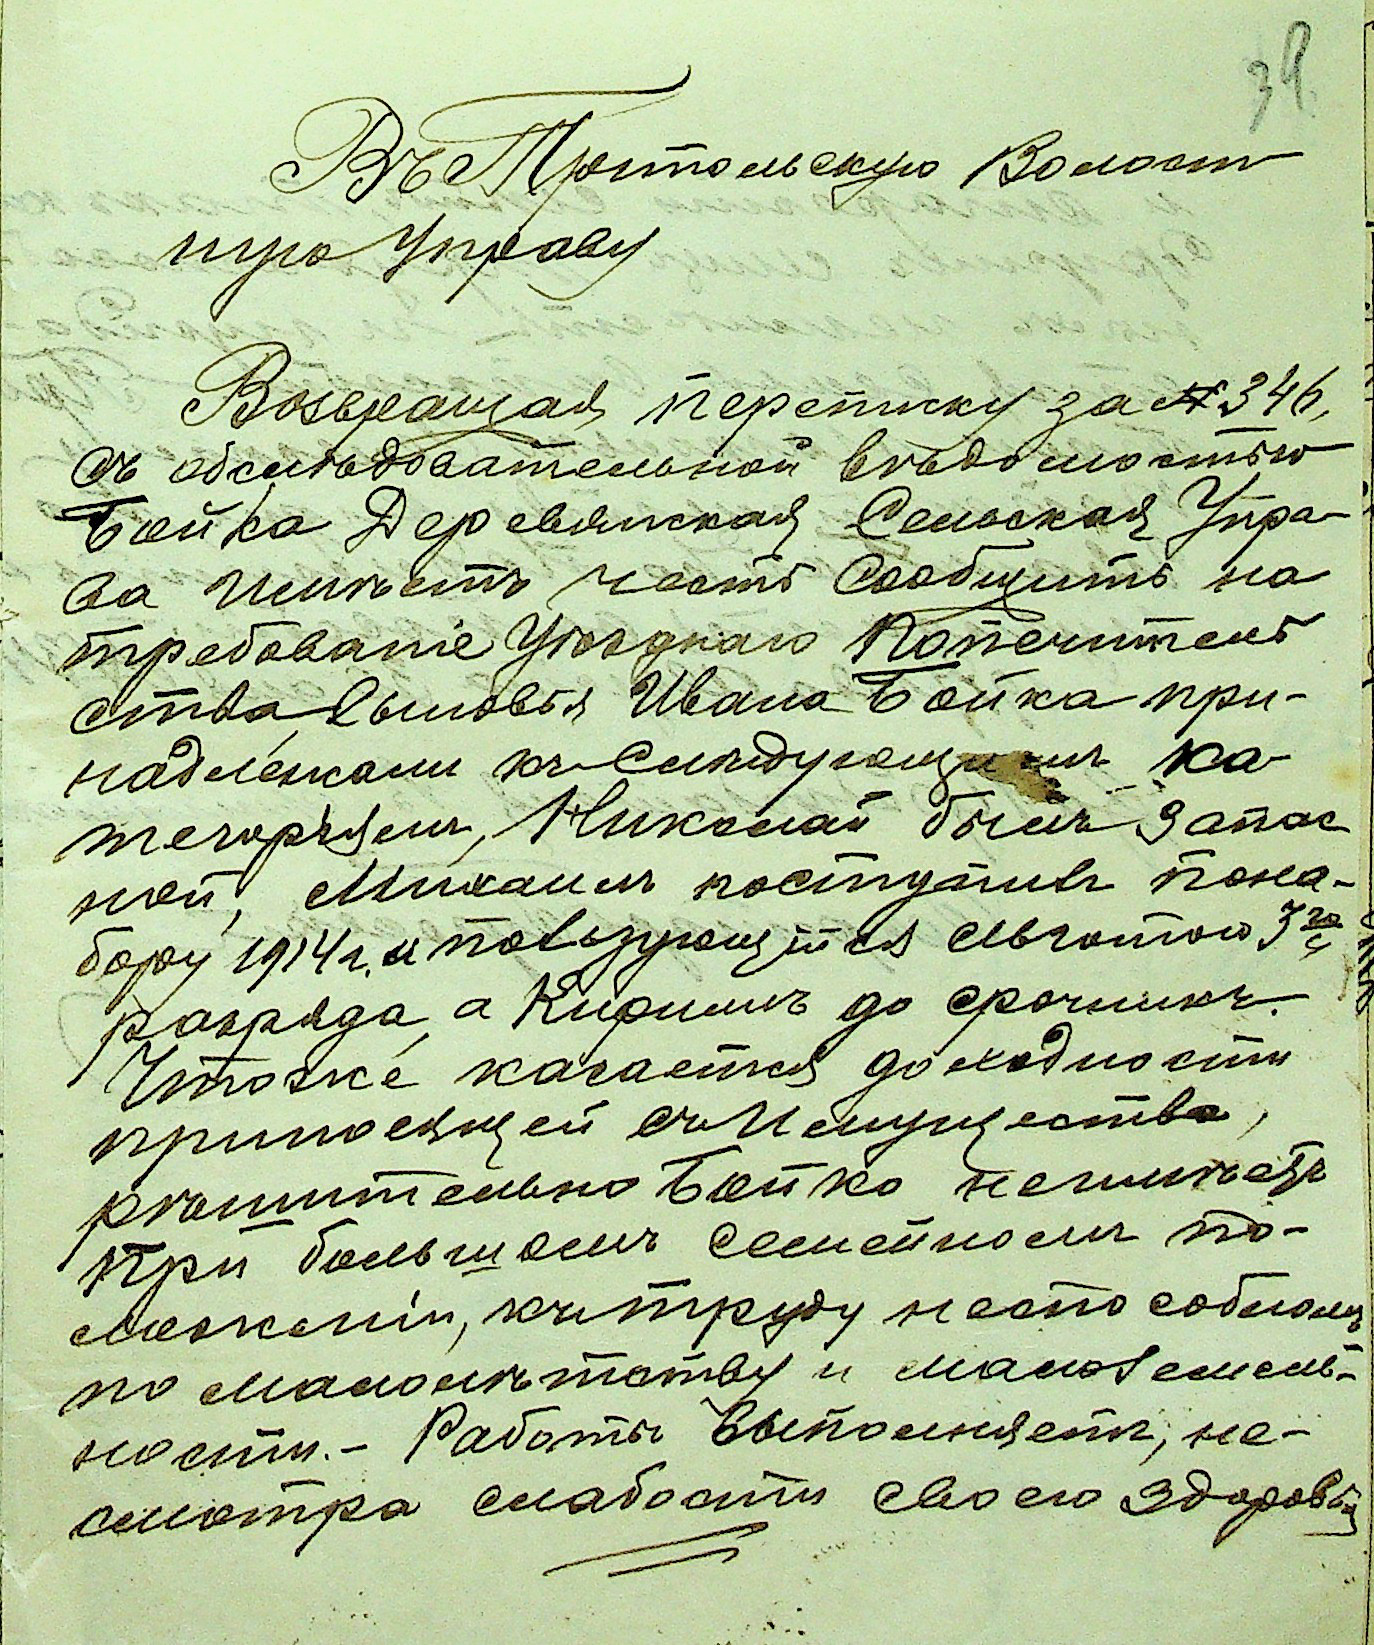 39.
Въ Протольскую Волост
ную Управу
Возвращая переписку за № 346,
съ обслѣдовательной вѣдомостью
Бойка Деревянская Сельская Упра-
ва имѣетъ честь сообщить на
требованіе Уѣзднаго Попечитель
ства, сыновья Ивана Бойка при-
надлежали къ слѣдующимъ ка
тегоріямъ, Николай былъ запас
ной, Михаилъ поступивъ по на-
бору 1914 г. и пользующійся льготою 3го
разряда, а Кирилъ до срочникъ.
Что же касается доходности
приносящей съ Имущества,
рѣшительно Бойко не имѣетъ
При большомъ семейномъ по-
ложеніи, къ труду неспособномъ
по малолѣтству и малоземель-
ности. - Работы выполняетъ, не-
смотра слабости своего здоровья